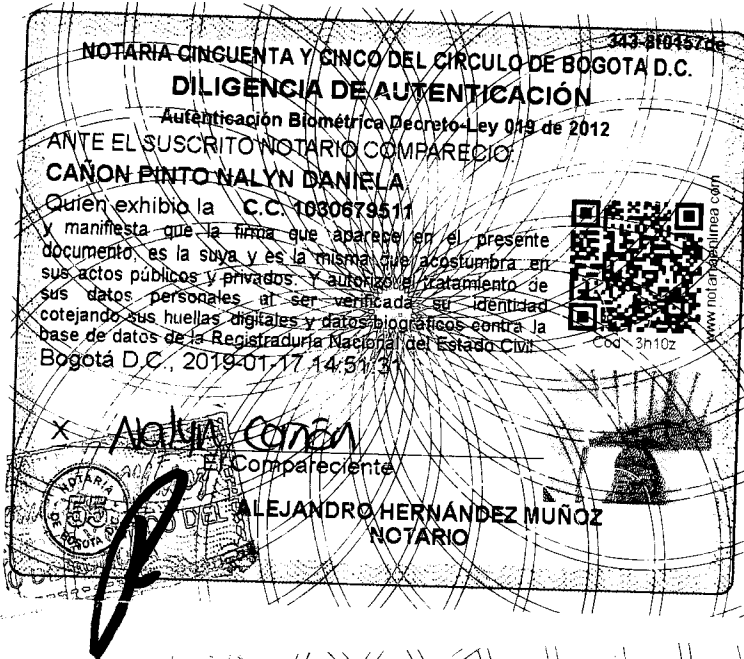 343-8f0157de
NOTARIA CINCUENTA Y CINCO DEL CÍRCULO DE BOGOTA D.C.
DILIGENCIA DE AUTENTICACIÓN
Autenticación Biométrica Decreto-Ley 019 de 2012
ANTE EL SUSCRITO NOTARIO COMPARECIO:
CAÑON PINTO NALYN DANIELA
Quien exhibió la C.C. 1030679511
y manifiesta que la firma que aparece en el presente
documento, es la suya y es la misma que acostumbra en
sus actos públicos y privados. Y autorizó el tratamiento de
sus datos personales al ser verificada su identidad
cotejando sus huellas digitales y datos biográficos contra la
base de datos de la Registraduría Nacional del Estado Civil.
Bogotá D.C., 2019-01-17 14:51:31
www.notariaenlinea.com
Cod. 3h10z
X Nalyn Cañón
El Compareciente
ALEJANDRO HERNÁNDEZ MUÑOZ
NOTARIO
NOTARIA
55
BOGOTA